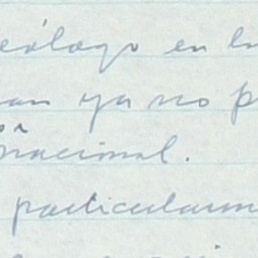 eólogo en la
an ya no p
nacional.
particularm